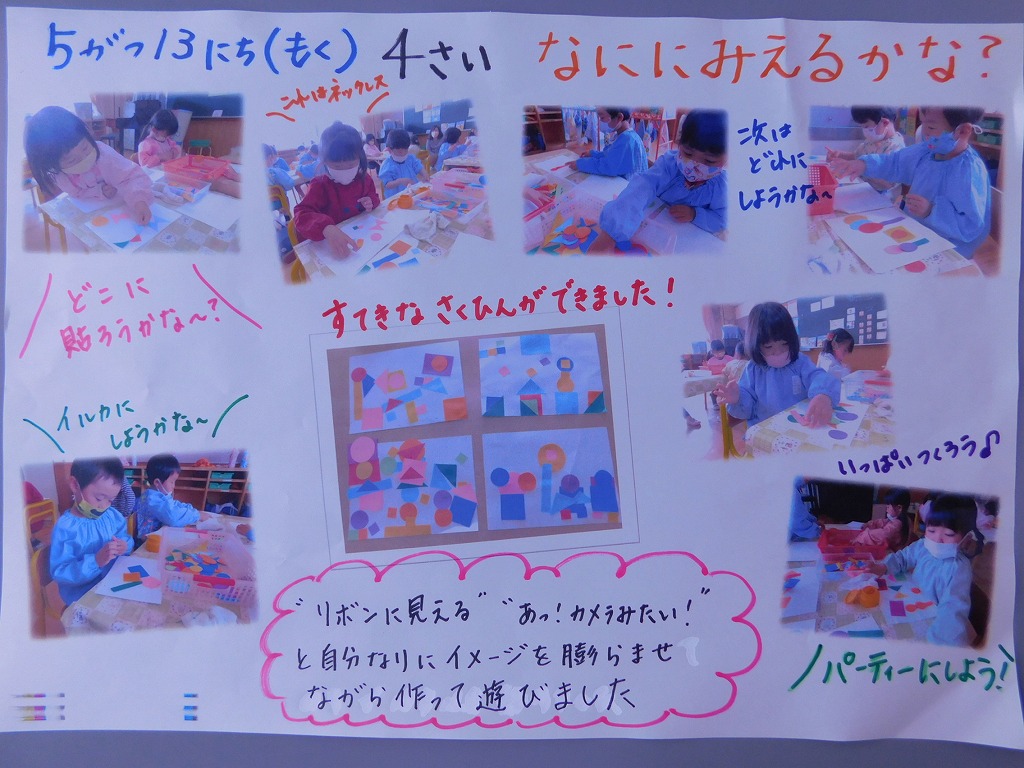 5がつ13にち(もく) 4さい なににみえるかな?
これはネックレス
次は
どれに
しようかな〜
どこに
貼ろうかな〜?
すてきなさくひんができました!
イルカに
しようかな〜
いっぱいつくろう♪
"リボンに見える" "あっ!カメラみたい!"
と自分なりにイメージを膨らませ
ながら作って遊びました
パーティーにしよう!